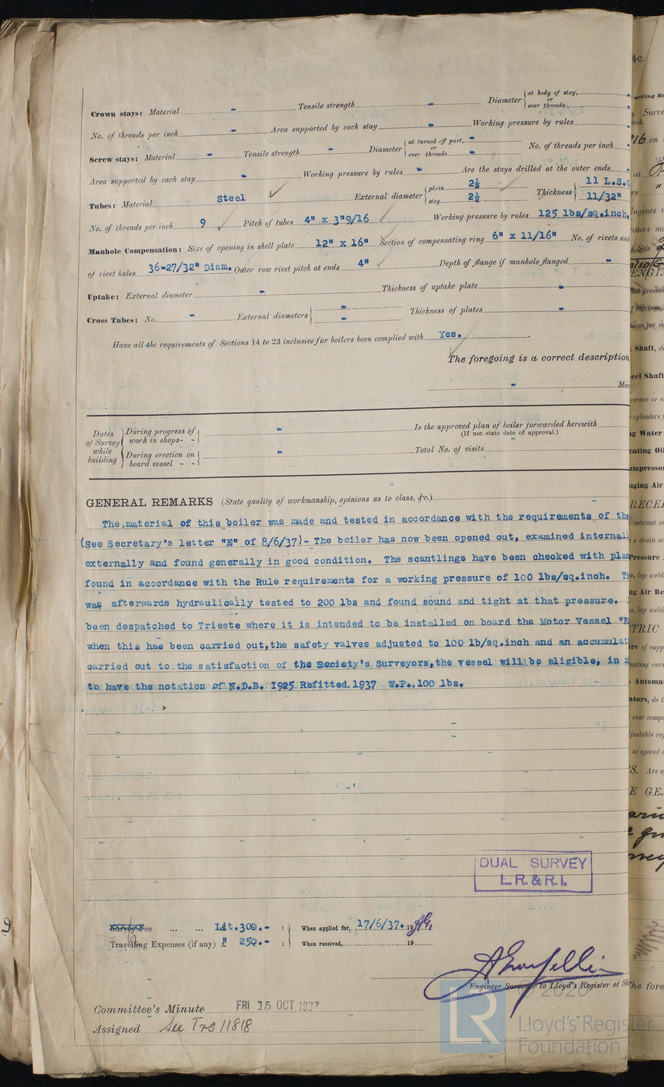 Crown stays: Material - Tensile strength - Diameter { at body of stay, or over threads -
No. of threads per inch - Area supported by each stay - Working pressure by rules -
Screw stays: Material - Tensile strength - Diameter { at turned off part, or over threads - No. of threads per inch -
Area supported by each stay - Working pressure by rules - Are the stays drilled at the outer ends -
Tubes: Material Steel External diameter { plain 2½ stay 2½ Thickness { 11 L.S.G 11/32"
No. of threads per inch 9 Pitch of tubes 4" x 3"9/16 Working pressure by rules 125 lbs/sq.inch.
Manhole Compensation: Size of opening in shell plate 12" x 16" Section of compensating ring 6" x 11/16" No. of rivets and
of rivet holes 36-27/32" Diam. Outer row rivet pitch at ends 4" Depth of flange if manhole flanged -
Uptake: External diameter - Thickness of uptake plate -
Cross Tubes: No. - External diameters { - - Thickness of plates -
Have all the requirements of Sections 14 to 23 inclusive for boilers been complied with Yes.
The foregoing is a correct description,
-
Dates of Survey while building { During progress of work in shops - - } - Is the approved plan of boiler forwarded herewith
(If not state date of approval.) -
During erection on board vessel - - } - Total No. of visits
GENERAL REMARKS (State quality of workmanship, opinions as to class, &c.)
The material of this boiler was made and tested in accordance with the requirements of the
(See Secretary's letter "E" of 8/6/37)- The boiler has now been opened out, examined internal
externally and found generally in good condition. The scantlings have been checked with plan
found in accordance with the Rule requirements for a working pressure of 100 lbs/sq.inch. Th
was afterwards hydraulically tested to 200 lbs and found sound and tight at that pressure.
been despatched to Trieste where it is intended to be installed on board the Motor Vessel "E
when this has been carried out, the safety valves adjusted to 100 lb/sq.inch and an accumulat
carried out to the satisfaction of the Society's Surveyors, the vessel will be eligible, in
to have the notation of N.D.B. 1925 Refitted 1937 W.P. 100 lbs.
DUAL SURVEY
L.R.&R.I.
Survey Fee ... ... Lit.300.- : } When applied for, 17/6/37. 19
Travelling Expenses (if any) £ 250.- : } When received, 19
Engineer Surveyor to Lloyd's Register of Sh
Committee's Minute FRI 15 OCT 1937
Assigned See Trs 11818
© 2020
LR
Lloyd's Register
Foundation